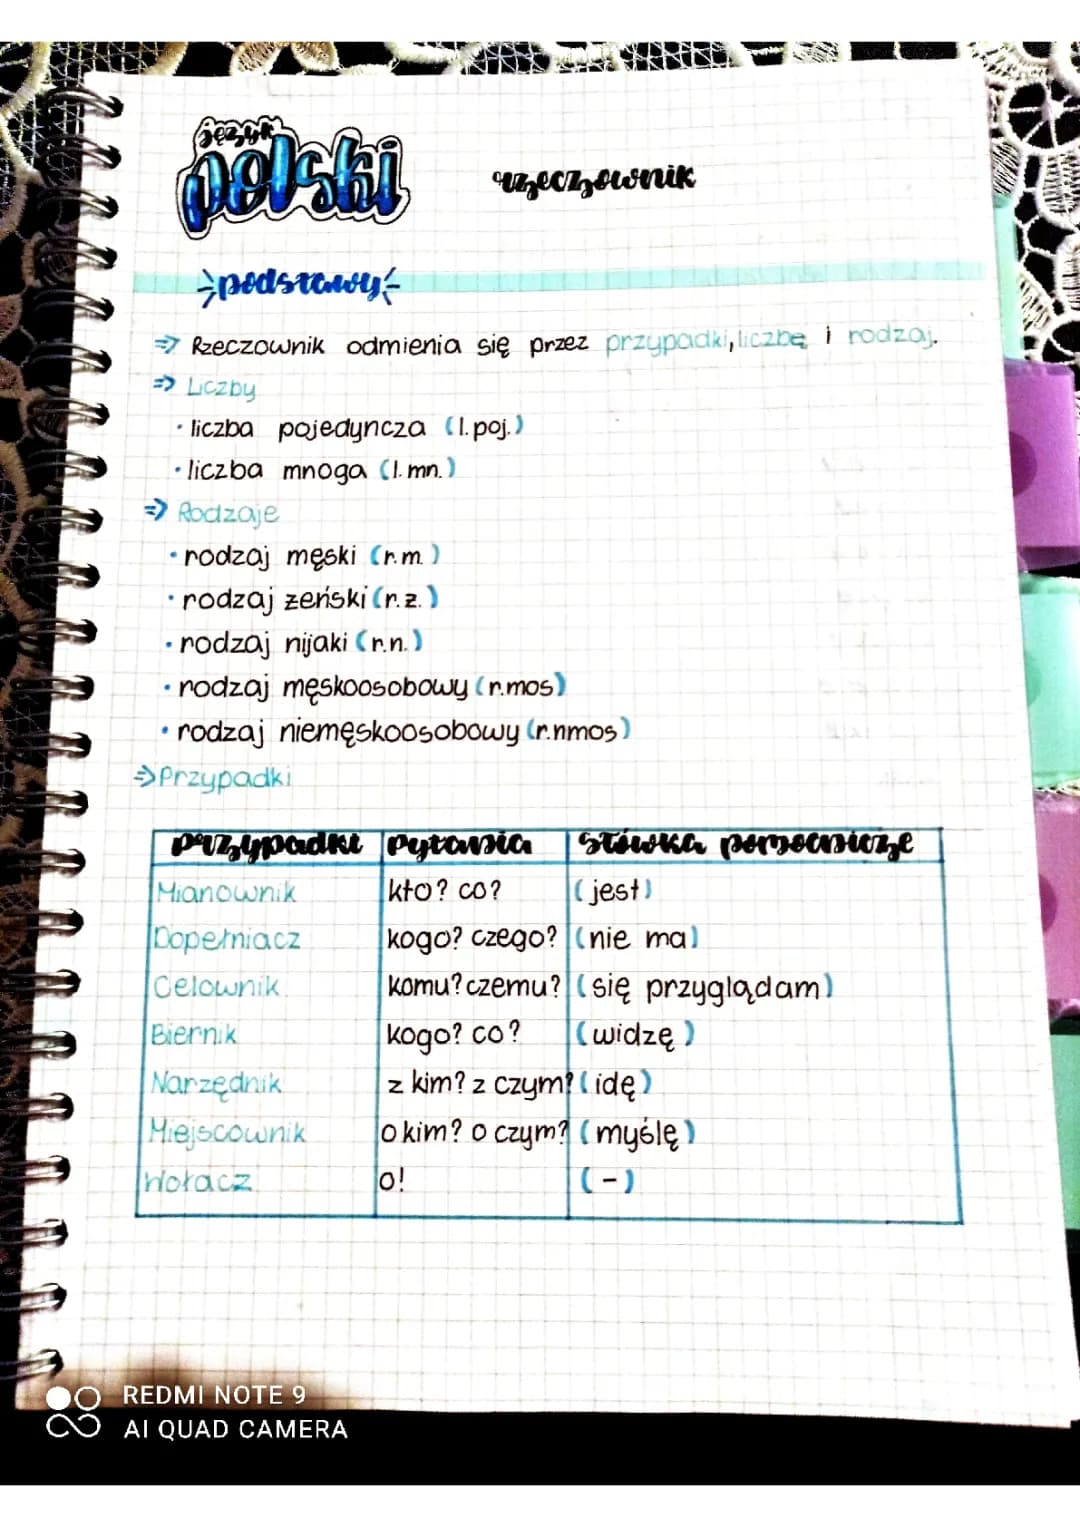 język
polski
rzeczownik
podstawy
=> Rzeczownik odmienia się przez przypadki, liczbę i rodzaj.
=> Liczby
• liczba pojedyncza (l. poj.)
• liczba mnoga (l. mn.)
=> Rodzaje
• rodzaj męski (r.m.)
• rodzaj żeński (r.ż.)
• rodzaj nijaki (r.n.)
• rodzaj męskoosobowy (r.mos)
• rodzaj niemęskoosobowy (r.nmos)
=> Przypadki
przypadki pytania słówka pomocnicze
Mianownik kto? co? (jest)
Dopełniacz kogo? czego? (nie ma)
Celownik komu? czemu? (się przyglądam)
Biernik kogo? co? (widzę)
Narzędnik z kim? z czym? (idę)
Miejscownik o kim? o czym? (myślę)
Wołacz o! (-)
REDMI NOTE 9
AI QUAD CAMERA